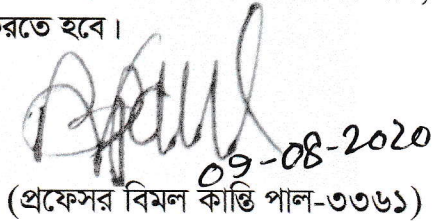 রতে হবে।
09-08-2020
(প্রফেসর বিমল কান্তি পাল-৩৩৬১)